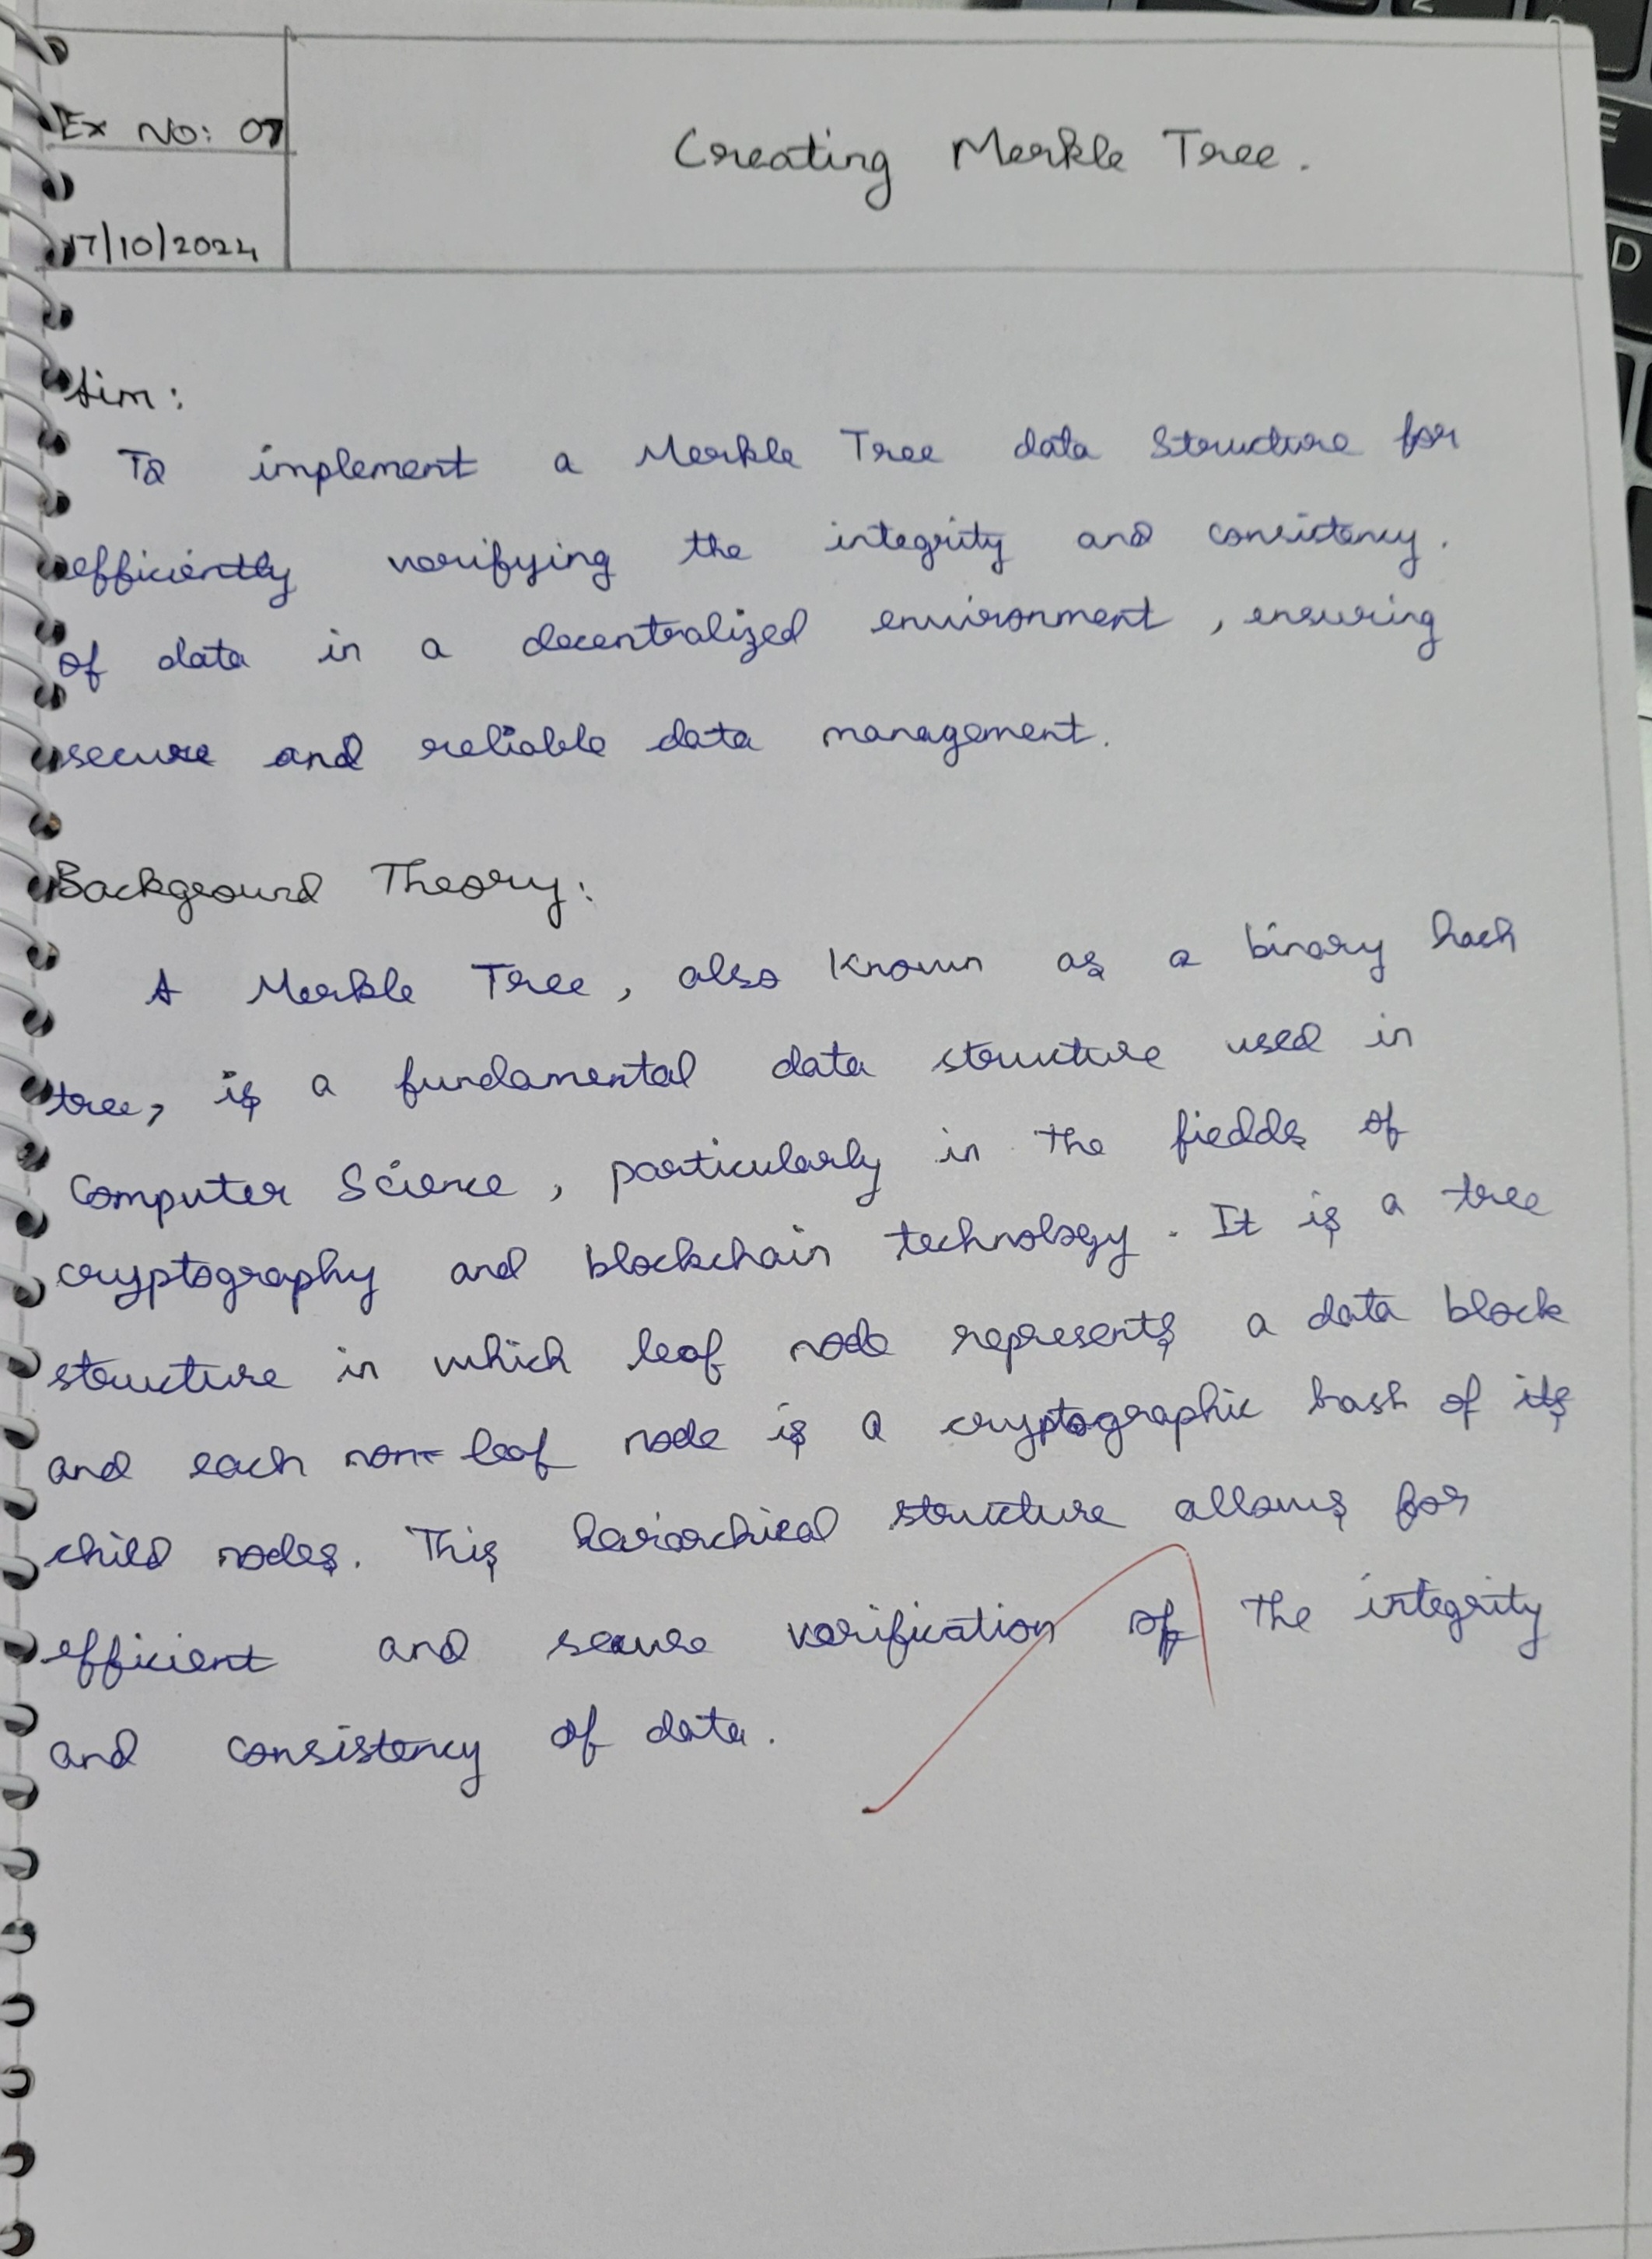 Ex No: 07
Creating Merkle Tree.
17/10/2024
Aim:
To implement a Merkle Tree data Structure for
efficiently verifying the integrity and consistency.
of data in a decentralized environment, ensuring
secure and reliable data management.
Background Theory:
A Merkle Tree, also known as a binary hash
tree, is a fundamental data structure used in
Computer Science, particularly in the fiedds of
cryptography and blockchain technology. It is a tree
structure in which leaf node represents a data block
and each non-leaf node is a cryptographic hash of its
child nodes. This heirarchical structure allows for
efficient and secure verification of the integrity
and consistency of data.
E
D